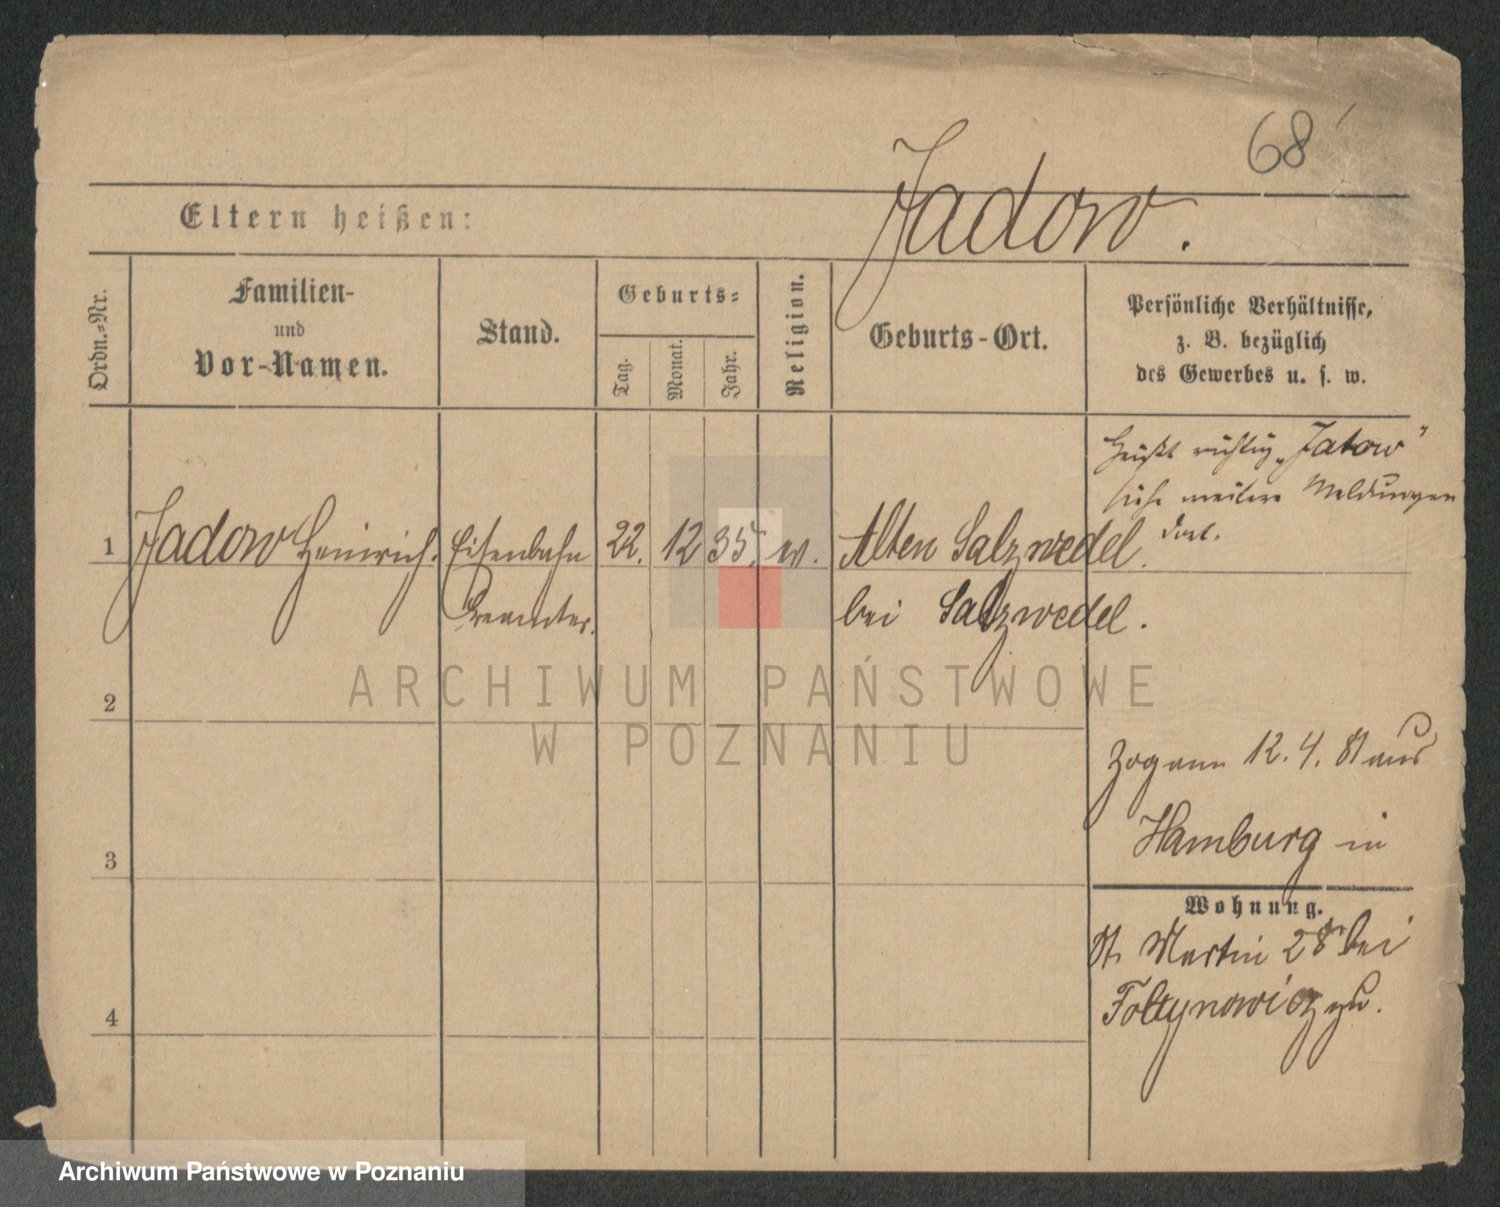 68
Jadow.
Eltern heißen:
Ordn.=Nr.
Familien-
und
Vor-Namen.
Stand.
Geburts=
Tag.
Monat.
Jahr.
Religion.
Geburts-Ort.
Persönliche Verhältnisse,
z. B. bezüglich
des Gewerbes u. s. w.
Heißt richtig „Jatow"
siehe weitere Meldungen
dort.
1 Jadow Heinrich. Eisenbahn 22. 12 35. Alten Salzwedel.
Beamter. bei Salzwedel.
2
3
4
zog am 12. 4. 81 aus
Hamburg in
Wohnung.
St. Martin 28 bei
Foltynowicz zu.
ARCHIWUM PAŃSTWOWE
W POZNANIU
Archiwum Państwowe w Poznaniu